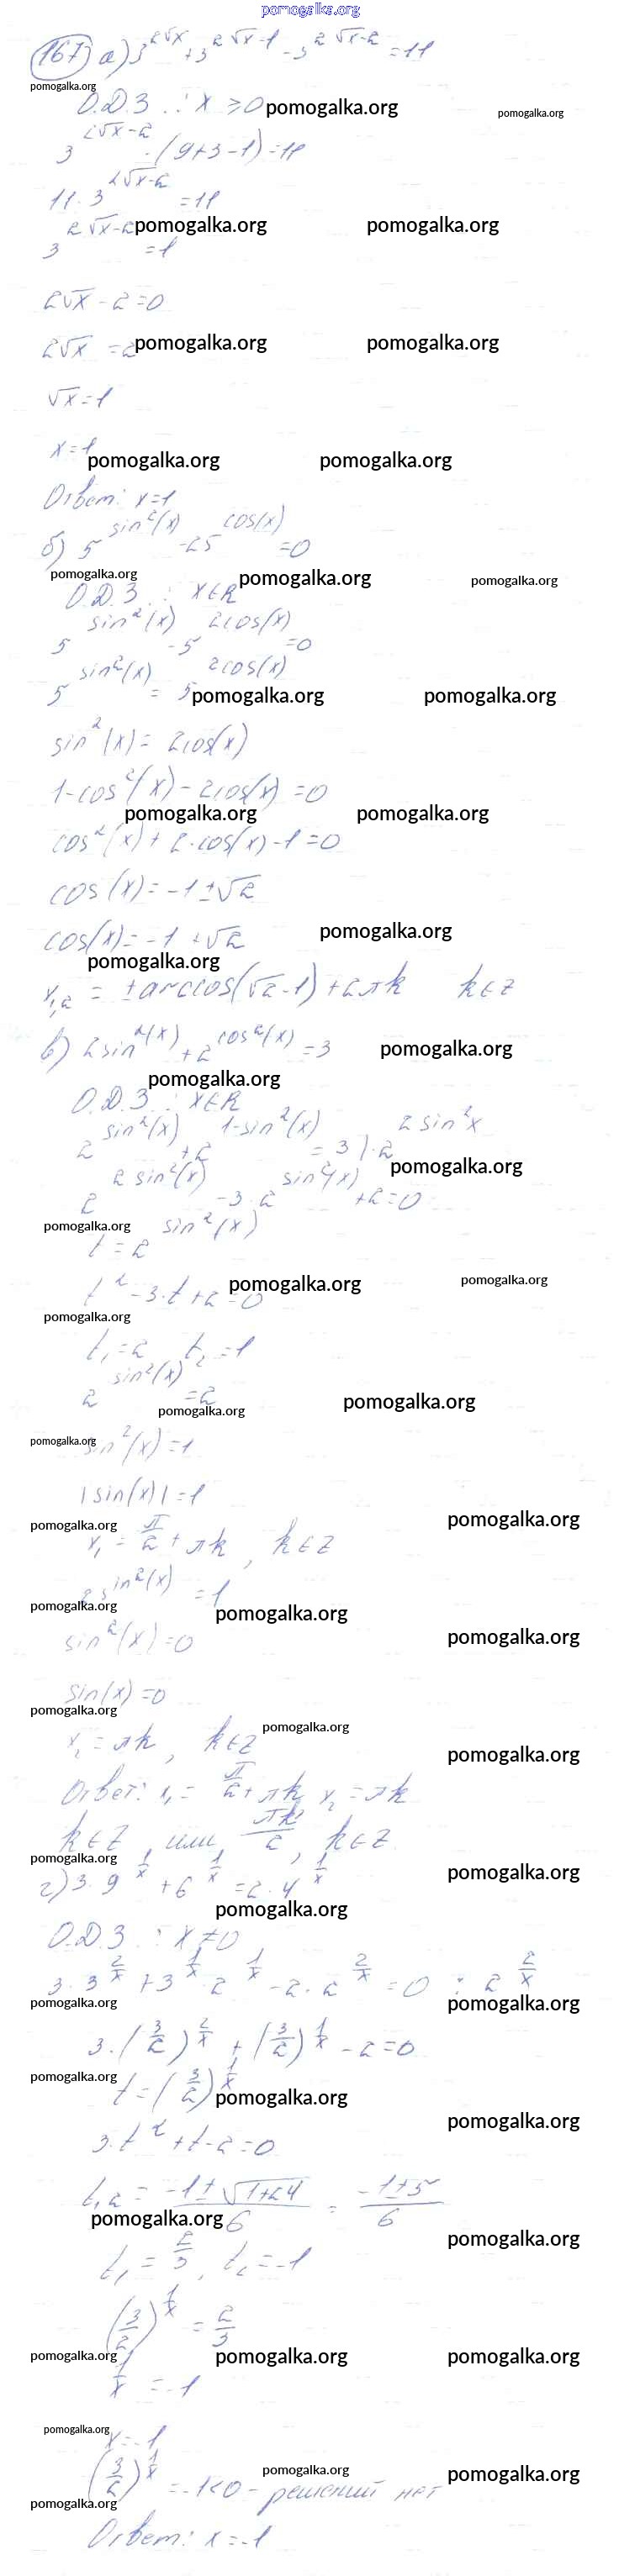 pomogalka.org
167) а) 3^(2√x) + 3^(2√x-1) - 3^(2√x-2) = 11
pomogalka.org
О.Д.З.: x ≥ 0 pomogalka.org pomogalka.org
3^(2√x-2) · (9+3-1) = 11
11 · 3^(2√x-2) = 11
3^(2√x-2) = 1 pomogalka.org pomogalka.org
2√x - 2 = 0
2√x = 2 pomogalka.org pomogalka.org
√x = 1
x = 1
pomogalka.org pomogalka.org
Ответ: x = 1
б) 5^(sin²(x)) - 25^(cos(x)) = 0
pomogalka.org pomogalka.org pomogalka.org
О.Д.З.: x∈R
5^(sin²(x)) - 5^(2cos(x)) = 0
5^(sin²(x)) = 5^(2cos(x)) pomogalka.org pomogalka.org
sin²(x) = 2cos(x)
1 - cos²(x) - 2cos(x) = 0
pomogalka.org pomogalka.org
cos²(x) + 2·cos(x) - 1 = 0
cos(x) = -1 ± √2
cos(x) = -1 + √2 pomogalka.org
pomogalka.org
x₁,₂ = ± arccos(√2-1) + 2πk k∈Z
в) 2^(sin²(x)) + 2^(cos²(x)) = 3 pomogalka.org
pomogalka.org
О.Д.З.: x∈R
2^(sin²(x)) + 2^(1-sin²(x)) = 3 | · 2^(sin²x)
pomogalka.org
2^(2sin²(x)) - 3·2^(sin²(x)) + 2 = 0
pomogalka.org
t = 2^(sin²(x))
pomogalka.org pomogalka.org
t² - 3·t + 2 = 0
pomogalka.org
t₁ = 2 t₂ = 1
2^(sin²(x)) = 2 pomogalka.org
pomogalka.org
pomogalka.org
sin²(x) = 1
|sin(x)| = 1
pomogalka.org pomogalka.org
x₁ = π/2 + πk, k∈Z
2^(sin²(x)) = 1
pomogalka.org pomogalka.org
sin²(x) = 0 pomogalka.org
sin(x) = 0
pomogalka.org
pomogalka.org
x₂ = πk, k∈Z
pomogalka.org
Ответ: x₁ = π/2 + πk x₂ = πk
k∈Z, или πk/2, k∈Z
pomogalka.org pomogalka.org
г) 3·9^(1/x) + 6^(1/x) = 2·4^(1/x)
pomogalka.org
О.Д.З.: x ≠ 0
3·3^(2/x) + 3^(1/x)·2^(1/x) - 2·2^(2/x) = 0 : 2^(2/x)
pomogalka.org pomogalka.org
3·(3/2)^(2/x) + (3/2)^(1/x) - 2 = 0
pomogalka.org
t = (3/2)^(1/x) pomogalka.org
pomogalka.org
3·t² + t - 2 = 0
t₁,₂ = (-1 ± √(1+24))/6 = (-1±5)/6
pomogalka.org
pomogalka.org
t₁ = 2/3, t₂ = -1
(3/2)^(1/x) = 2/3
pomogalka.org pomogalka.org pomogalka.org
1/x = -1
pomogalka.org
x = -1
pomogalka.org pomogalka.org
(3/2)^(1/x) = -1 < 0 - решений нет
pomogalka.org
Ответ: x = -1